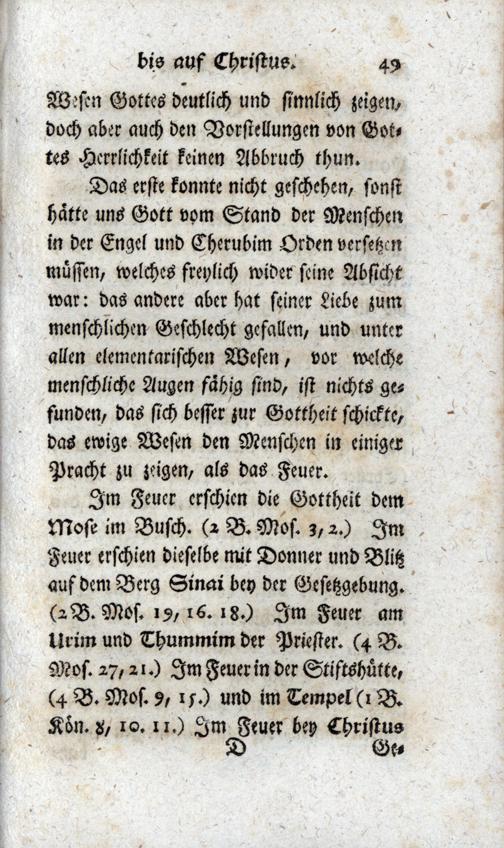 bis auf Christus. 49
Wesen Gottes deutlich und sinnlich zeigen,
doch aber auch den Vorstellungen von Got-
tes Herrlichkeit keinen Abbruch thun.
Das erste konnte nicht geschehen, sonst
hätte uns Gott vom Stand der Menschen
in der Engel und Cherubim Orden versetzen
müssen, welches freylich wider seine Absicht
war: das andere aber hat seiner Liebe zum
menschlichen Geschlecht gefallen, und unter
allen elementarischen Wesen, vor welche
menschliche Augen fähig sind, ist nichts ge-
funden, das sich besser zur Gottheit schickte,
das ewige Wesen den Menschen in einiger
Pracht zu zeigen, als das Feuer.
Im Feuer erschien die Gottheit dem
Mose im Busch. (2 B. Mos. 3, 2.) Im
Feuer erschien dieselbe mit Donner und Blitz
auf dem Berg Sinai bey der Gesetzgebung.
(2 B. Mos. 19, 16. 18.) Im Feuer am
Urim und Thummim der Priester. (4 B.
Mos. 27, 21.) Im Feuer in der Stiftshütte,
(4 B. Mos. 9, 15.) und im Tempel (1 B.
Kön. 8, 10. 11.) Im Feuer bey Christus
D Ge-